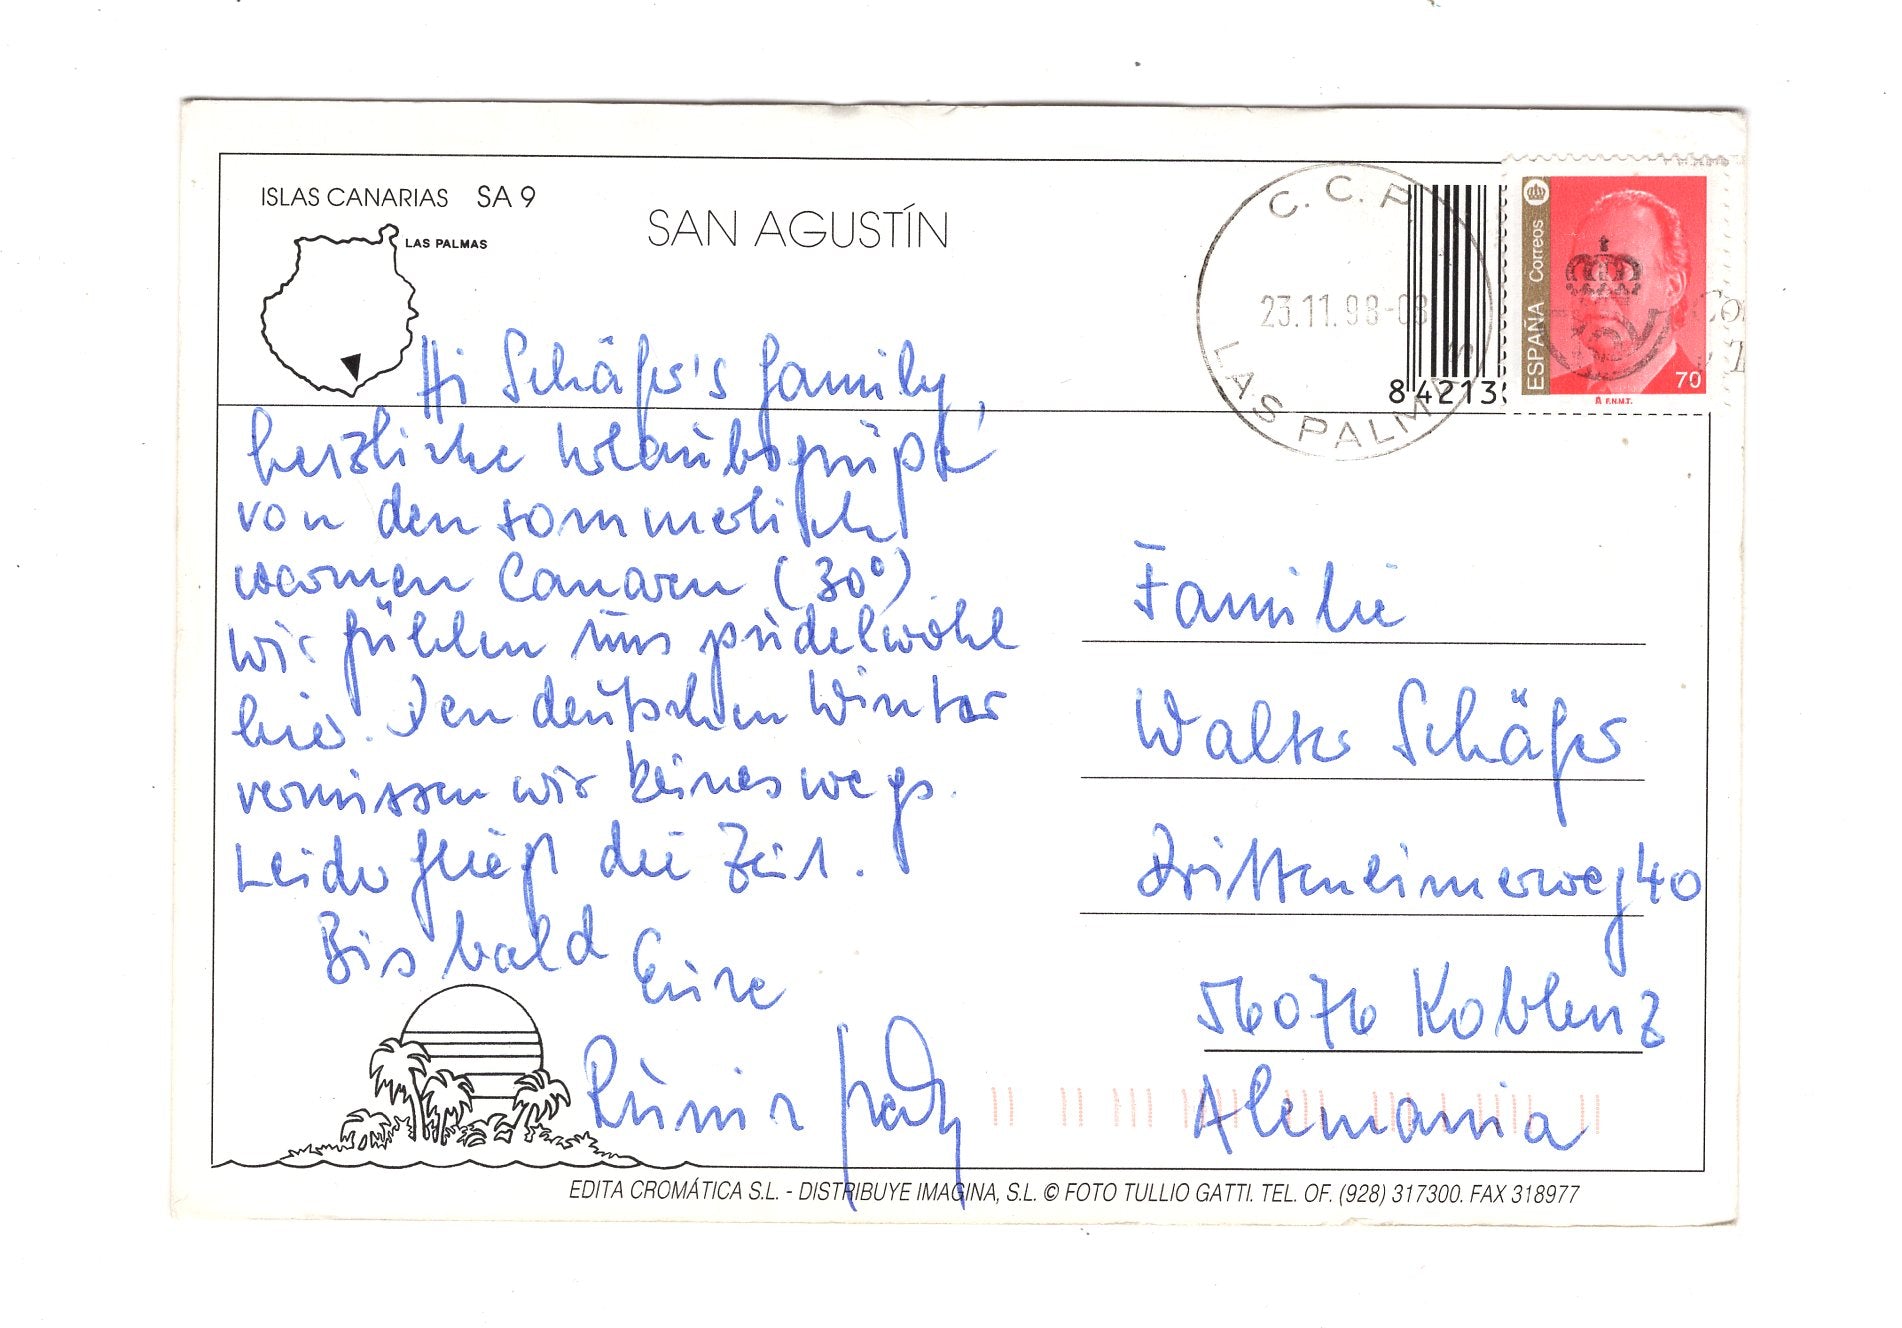 ISLAS CANARIAS SA 9
LAS PALMAS
SAN AGUSTÍN
C. C. P.
23.11.98-08
LAS PALMAS
84213
ESPAÑA Correos
70
F.N.M.T.
Hi Schäfer's family,
herzliche Urlaubsgrüße
von den sommerlich
warmen Canaren (30°)
Wir fühlen uns pudelwohl
hier. Den deutschen Winter
vermissen wir keineswegs.
Leider fliegt die Zeit.
Bis bald Eure
Familie
Walter Schäfer
56076 Koblenz
Alemania
EDITA CROMÁTICA S.L. - DISTRIBUYE IMAGINA, S.L. © FOTO TULLIO GATTI. TEL. OF. (928) 317300. FAX 318977